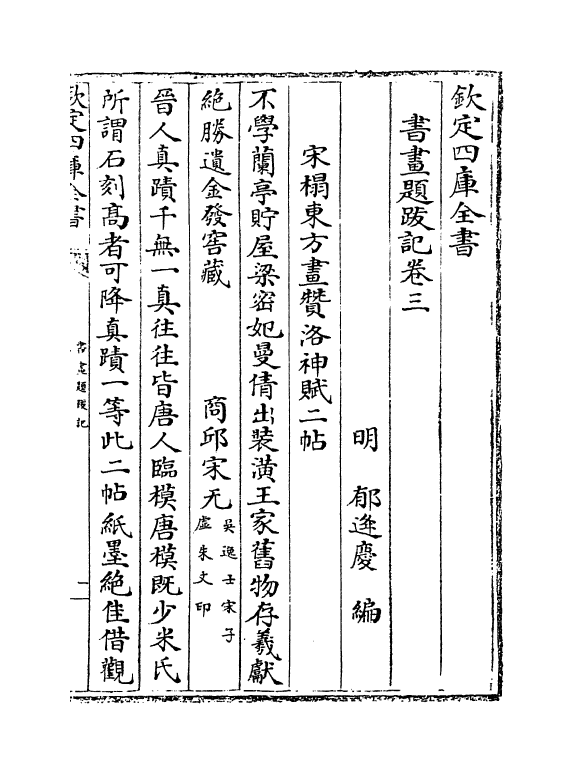 欽定四庫全書
書畫題跋記卷三
明 郁逢慶 編
宋榻東方畫贊洛神賦二帖
不學蘭亭貯屋梁宻妃曼倩出裝潢王家舊物存羲獻
絶勝遺金發窖藏 商邱宋无吳逸士宋子虛朱文印
晉人真蹟千無一真往往皆唐人臨模唐模既少米氏
所謂石刻髙者可降真蹟一等此二帖紙墨絶佳借觀
欽定四庫全書
書畫題跋記